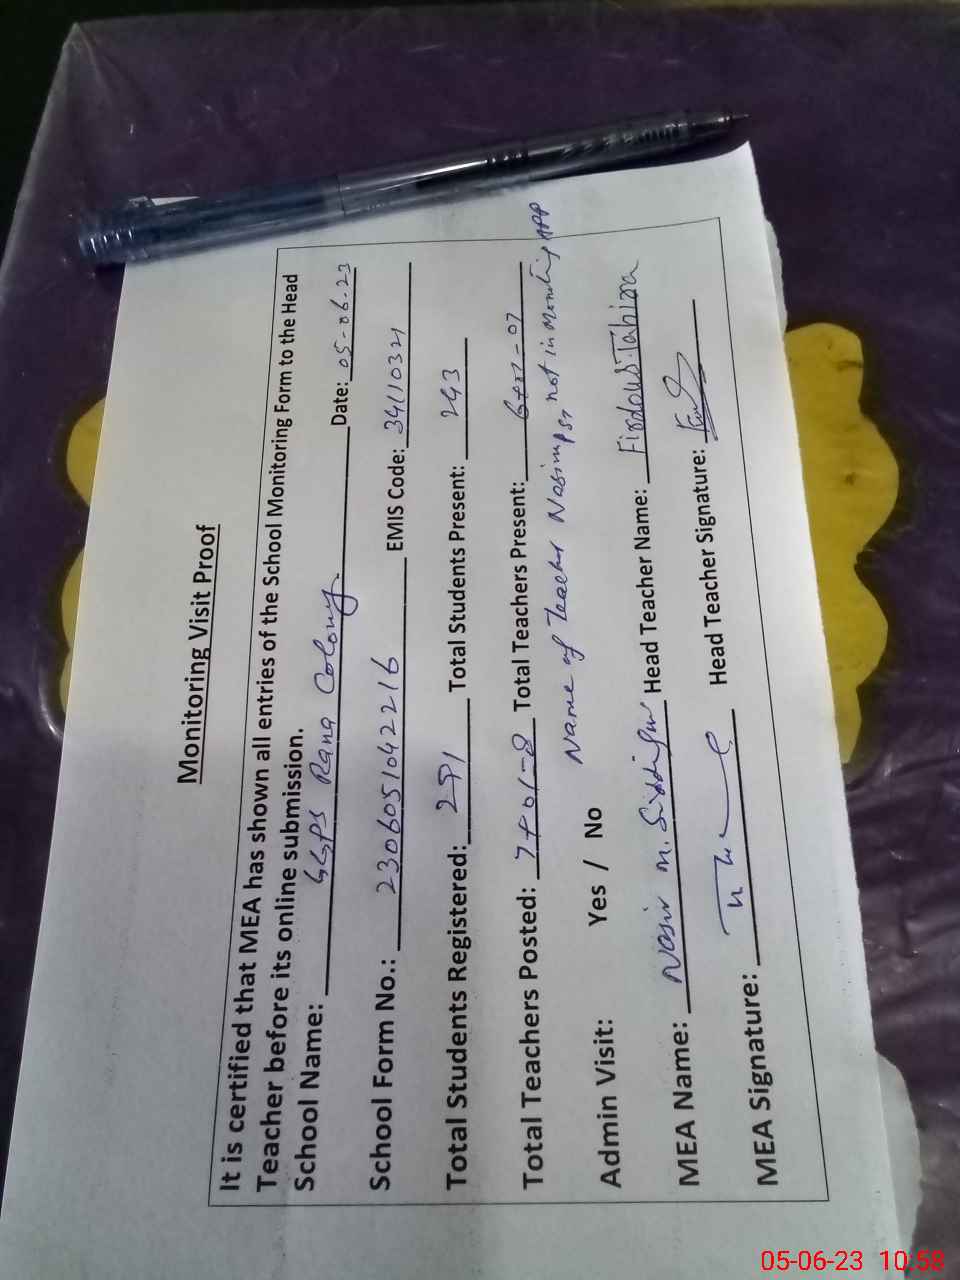 Monitoring Visit Proof
It is certified that MEA has shown all entries of the School Monitoring Form to the Head
Teacher before its online submission.
School Name: GGPS Rana Colony. Date: 05-06-23
School Form No.: 23060510422 16 EMIS Code: 34110321
Total Students Registered: 291 Total Students Present: 243
Total Teachers Posted: 7+01-8 Total Teachers Present: 6+01-07
Name of Teacher not in Monitring APP
Admin Visit: Yes / No
MEA Name: Nasir M. Head Teacher Name: Firdous Tahira
MEA Signature: Head Teacher Signature:
05-06-23 10:58